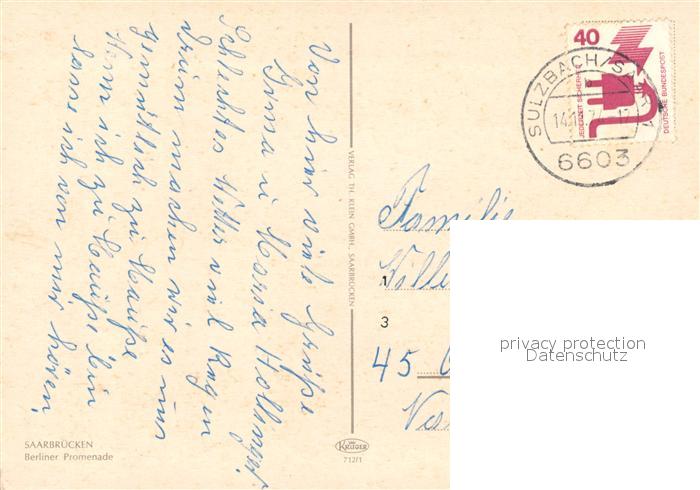 Von hier viele Grüße
Irma u Maria Hollinger
Schlechtes Wetter viel Regen
Drum machen wir es uns
gemütlich zu Hauße
Wenn ich zu Hauße bin
lasse ich von mir hören
VERLAG TH. KLEIN GMBH., SAARBRÜCKEN
SAARBRÜCKEN
Berliner Promenade
KRÜGER
712/1
40
JEDERZEIT SICHERHEIT
DEUTSCHE BUNDESPOST
SULZBACH/SAAR 1
14.
6603
Familie
Wille
1
3
45
privacy protection
Datenschutz